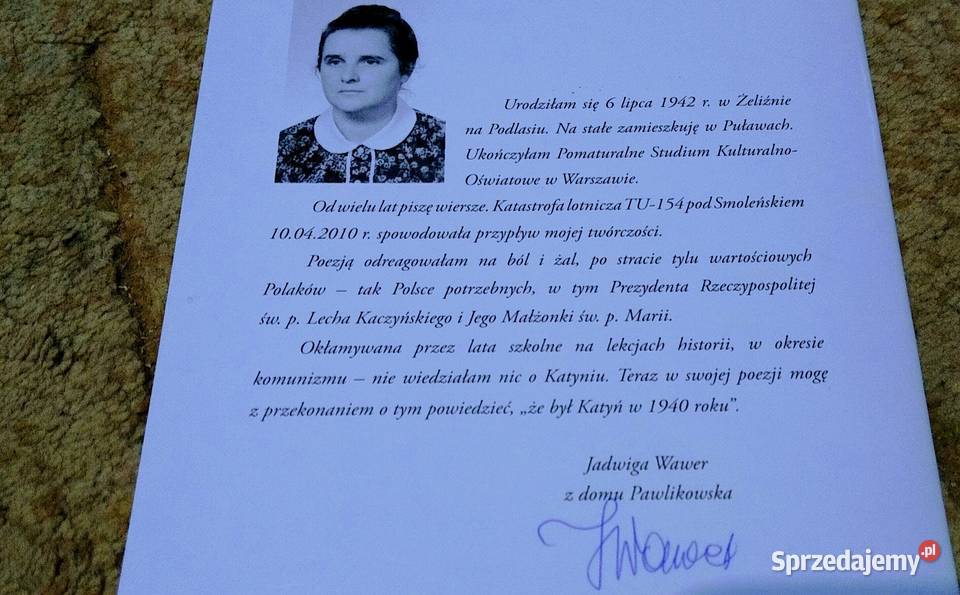 Urodziłam się 6 lipca 1942 r. w Żeliźnie
na Podlasiu. Na stałe zamieszkuję w Puławach.
Ukończyłam Pomaturalne Studium Kulturalno-
Oświatowe w Warszawie.
Od wielu lat piszę wiersze. Katastrofa lotnicza TU-154 pod Smoleńskiem
10.04.2010 r. spowodowała przypływ mojej twórczości.
Poezją odreagowałam na ból i żal, po stracie tylu wartościowych
Polaków – tak Polsce potrzebnych, w tym Prezydenta Rzeczypospolitej
św. p. Lecha Kaczyńskiego i Jego Małżonki św. p. Marii.
Okłamywana przez lata szkolne na lekcjach historii, w okresie
komunizmu – nie wiedziałam nic o Katyniu. Teraz w swojej poezji mogę
z przekonaniem o tym powiedzieć, „że był Katyń w 1940 roku”.
Jadwiga Wawer
z domu Pawlikowska
JWawer
Sprzedajemy.pl